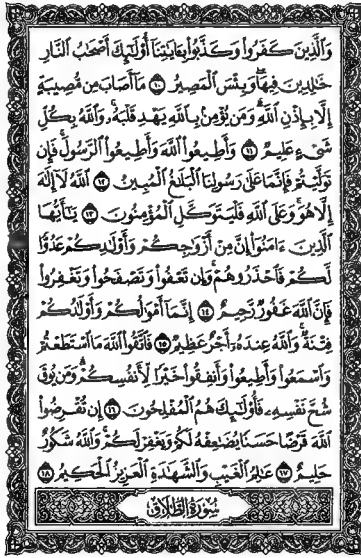 وَالَّذِينَ كَفَرُوا وَكَذَّبُوا بِـَٔايَٰتِنَا أُو۟لَٰٓئِكَ أَصْحَٰبُ النَّارِ
خَٰلِدِينَ فِيهَا وَبِئْسَ الْمَصِيرُ ١٠ مَا أَصَابَ مِن مُّصِيبَةٍ
إِلَّا بِإِذْنِ اللَّهِ وَمَن يُؤْمِنۢ بِاللَّهِ يَهْدِ قَلْبَهُۥ وَاللَّهُ بِكُلِّ
شَىْءٍ عَلِيمٌ ١١ وَأَطِيعُوا اللَّهَ وَأَطِيعُوا الرَّسُولَ فَإِن
تَوَلَّيْتُمْ فَإِنَّمَا عَلَىٰ رَسُولِنَا الْبَلَٰغُ الْمُبِينُ ١٢ اللَّهُ لَا إِلَٰهَ
إِلَّا هُوَ وَعَلَى اللَّهِ فَلْيَتَوَكَّلِ الْمُؤْمِنُونَ ١٣ يَٰٓأَيُّهَا
الَّذِينَ ءَامَنُوا إِنَّ مِنْ أَزْوَٰجِكُمْ وَأَوْلَٰدِكُمْ عَدُوًّا
لَّكُمْ فَاحْذَرُوهُمْ وَإِن تَعْفُوا وَتَصْفَحُوا وَتَغْفِرُوا
فَإِنَّ اللَّهَ غَفُورٌ رَّحِيمٌ ١٤ إِنَّمَا أَمْوَٰلُكُمْ وَأَوْلَٰدُكُمْ
فِتْنَةٌ وَاللَّهُ عِندَهُۥ أَجْرٌ عَظِيمٌ ١٥ فَاتَّقُوا اللَّهَ مَا اسْتَطَعْتُمْ
وَاسْمَعُوا وَأَطِيعُوا وَأَنفِقُوا خَيْرًا لِّأَنفُسِكُمْ وَمَن يُوقَ
شُحَّ نَفْسِهِۦ فَأُو۟لَٰٓئِكَ هُمُ الْمُفْلِحُونَ ١٦ إِن تُقْرِضُوا
اللَّهَ قَرْضًا حَسَنًا يُضَٰعِفْهُ لَكُمْ وَيَغْفِرْ لَكُمْ وَاللَّهُ شَكُورٌ
حَلِيمٌ ١٧ عَٰلِمُ الْغَيْبِ وَالشَّهَٰدَةِ الْعَزِيزُ الْحَكِيمُ ١٨
سُورَةُ الطَّلَاقِ